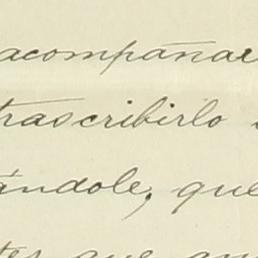 acompañar
trascribirlo
ándole, que
tes que